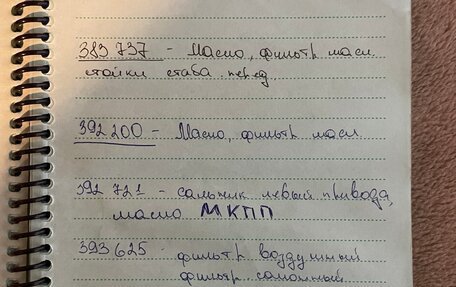 383 737 - Масло, фильтр масл.
стойки стаба перед
392 200 - Масло, фильтр масл
392 721 - сальник левый привода,
масло МКПП
393 625 - фильтр воздушный
фильтр салонный